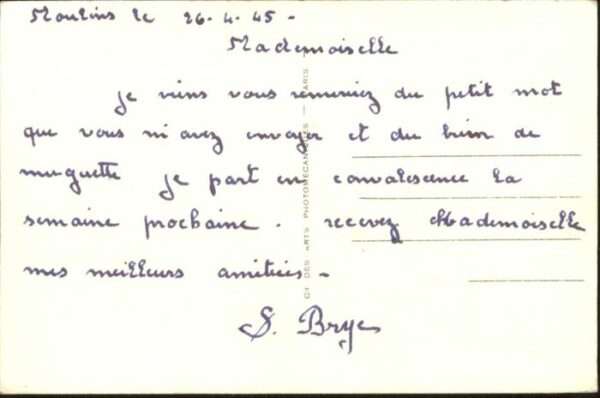 Moulins le 26-4-45-
Mademoiselle
je viens vous remerciez du petit mot
que vous m'avez envoyer et du brin de
muguette je part en convalescence la
semaine prochaine. recevez Mademoiselle
mes meilleurs amitiées-
S. Brye
DES ARTS PHOTOMECANIQUES — PARIS